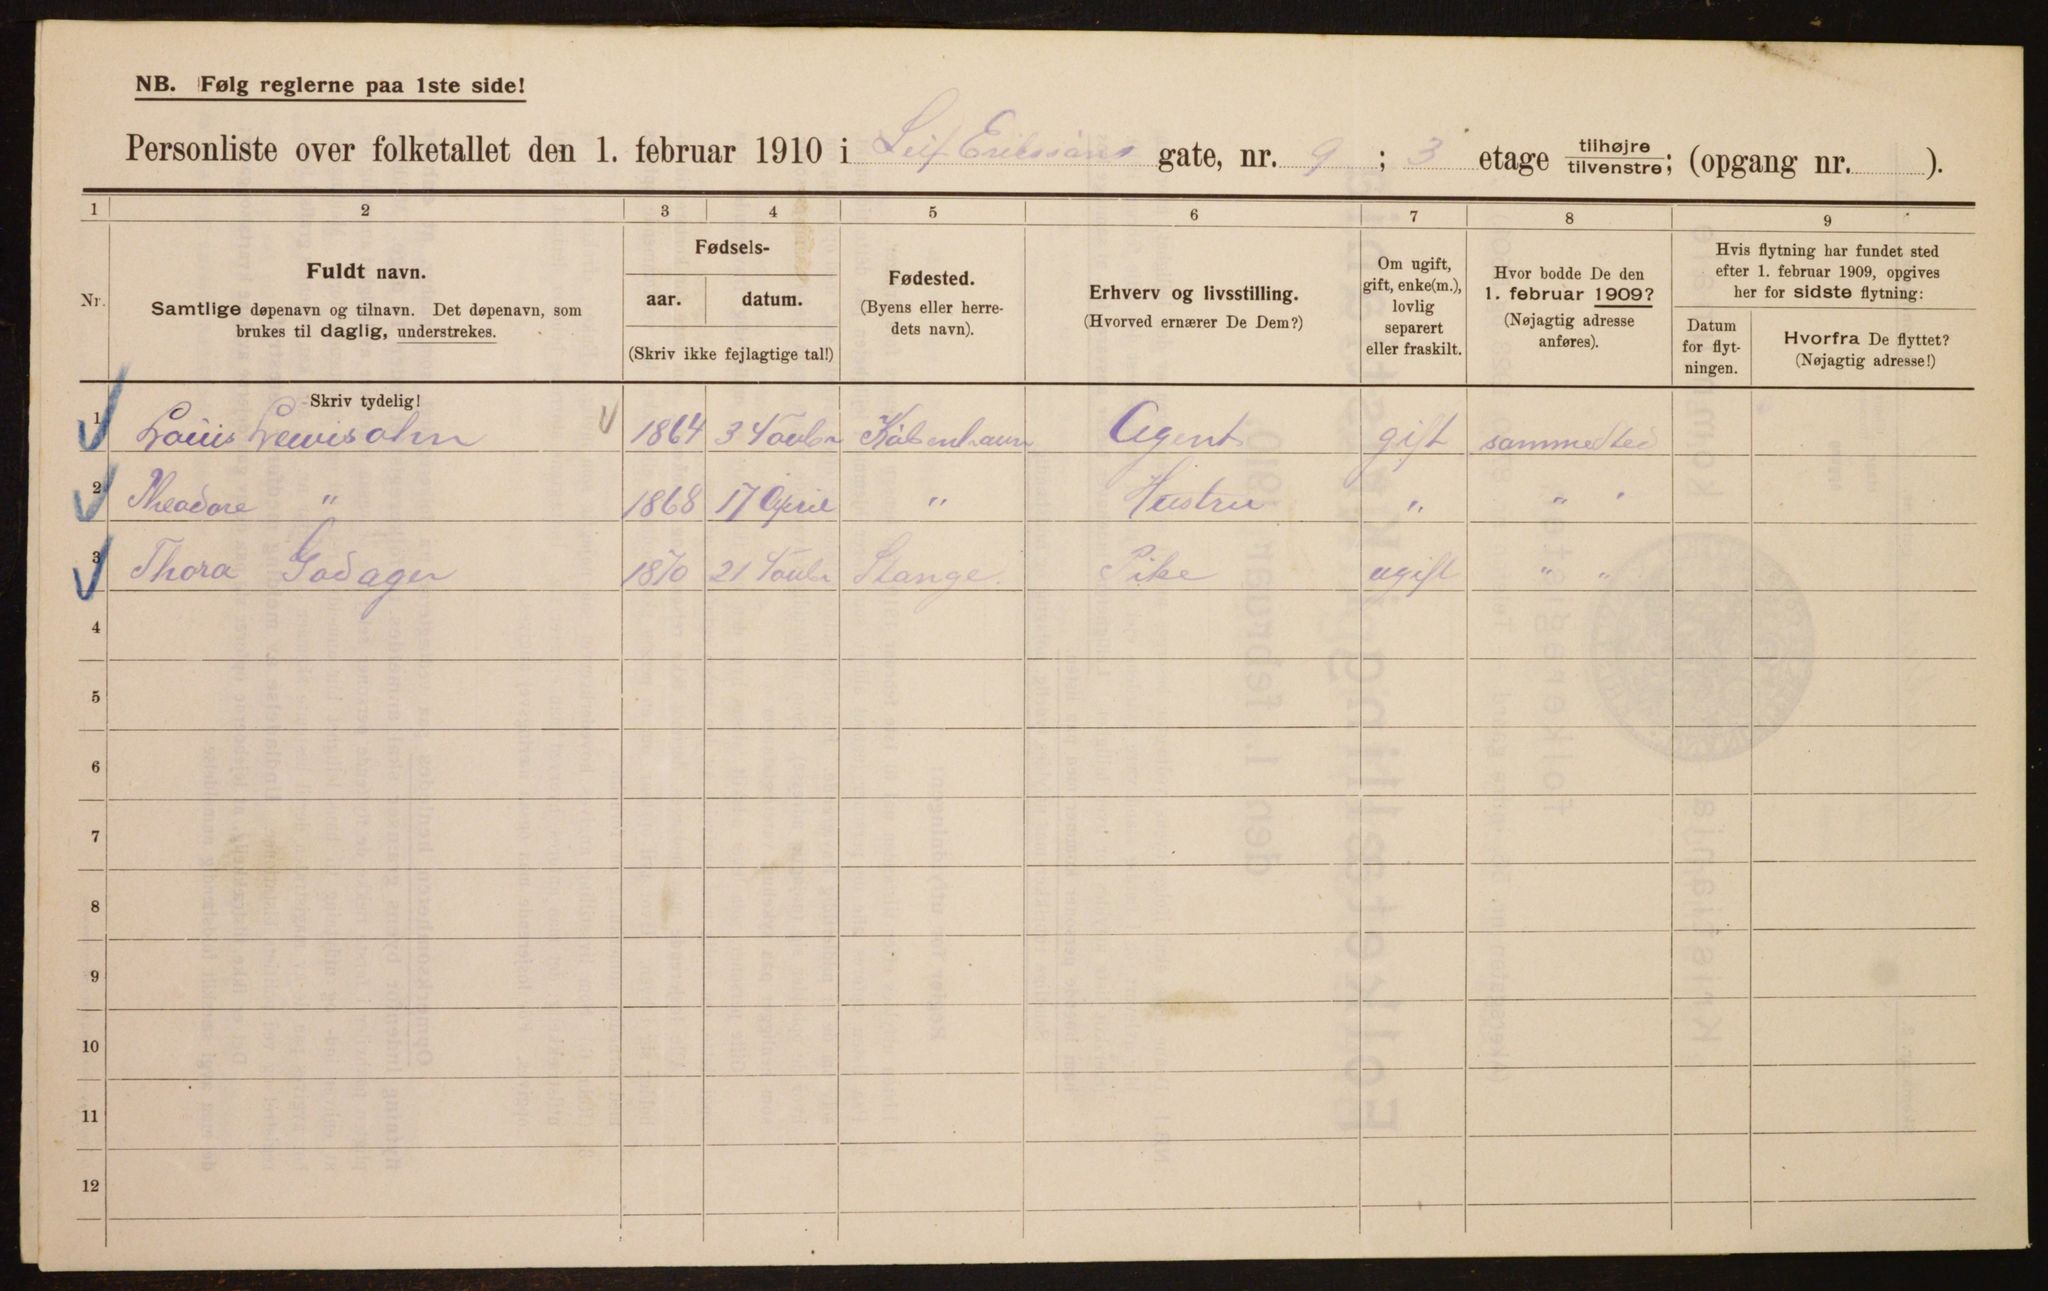 NB. Følg reglerne paa 1ste side!
Personliste over folketallet den 1. februar 1910 i Leif Erikssøns gate, nr. 9 ; 3 etage tilhøjre/tilvenstre; (opgang nr. ).
1 2 3 4 5 6 7 8 9
Nr.
Fuldt navn.
Samtlige døpenavn og tilnavn. Det døpenavn, som
brukes til daglig, understrekes.
Fødsels-
aar. datum.
(Skriv ikke fejlagtige tal!)
Fødested.
(Byens eller herre-
dets navn).
Erhverv og livsstilling.
(Hvorved ernærer De Dem?)
Om ugift,
gift, enke(m.),
lovlig
separert
eller fraskilt.
Hvor bodde De den
1. februar 1909?
(Nøjagtig adresse
anføres).
Hvis flytning har fundet sted
efter 1. februar 1909, opgives
her for sidste flytning:
Datum
for flyt-
ningen.
Hvorfra De flyttet?
(Nøjagtig adresse!)
Skriv tydelig!
1 Louis Lewisohn 1864 3 København Agent gift sammested
2 Theadore " 1868 17 April " Hustru " " "
3 Thora Godager 1870 21 Stange. Pike ugift " "
4
5
6
7
8
9
10
11
12